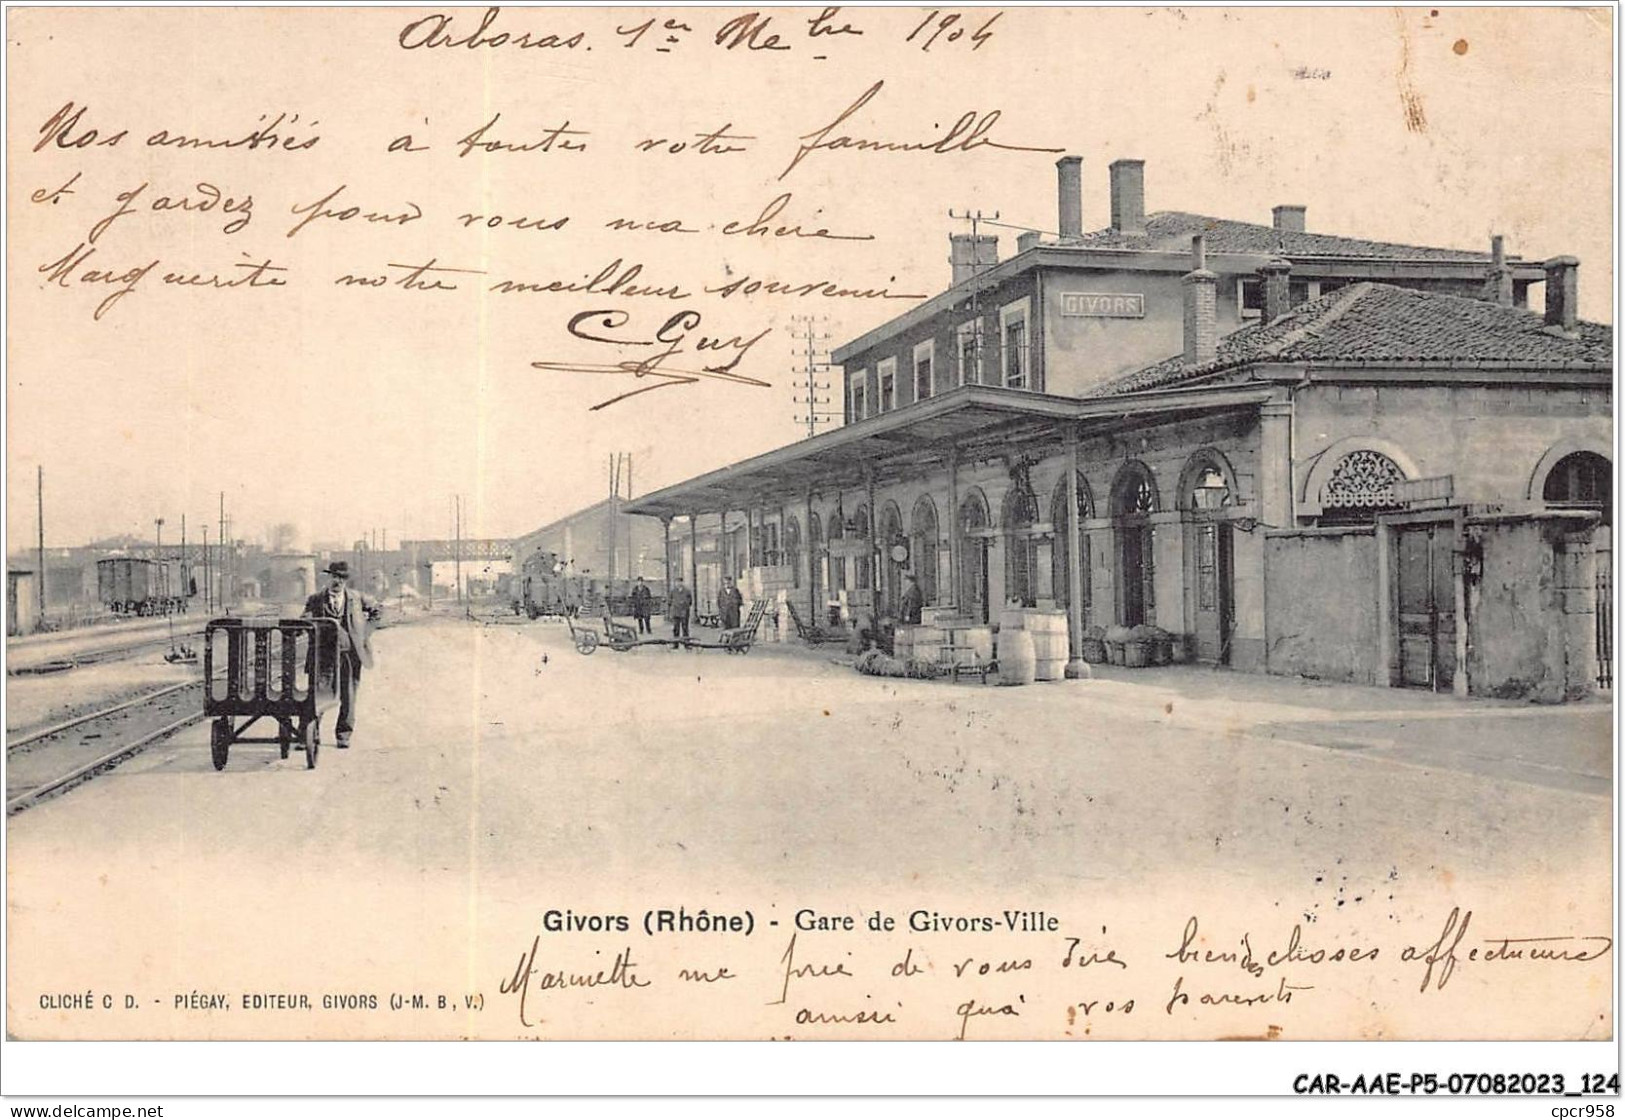 Arboras. 1er 9bre 1904
Nos amitiés à toutes votre famille
et gardez pour vous ma chère
Marguerite notre meilleur souvenir
C Guy
GIVORS
Givors (Rhône) - Gare de Givors-Ville
Mariette me prie de vous dire bien des choses affectueuses
ainsi qu'à vos parents
CLICHÉ C D. - PIÉGAY, EDITEUR, GIVORS (J-M. B, V.)
CAR-AAE-P5-07082023_124
delcampe.net
cpcr958